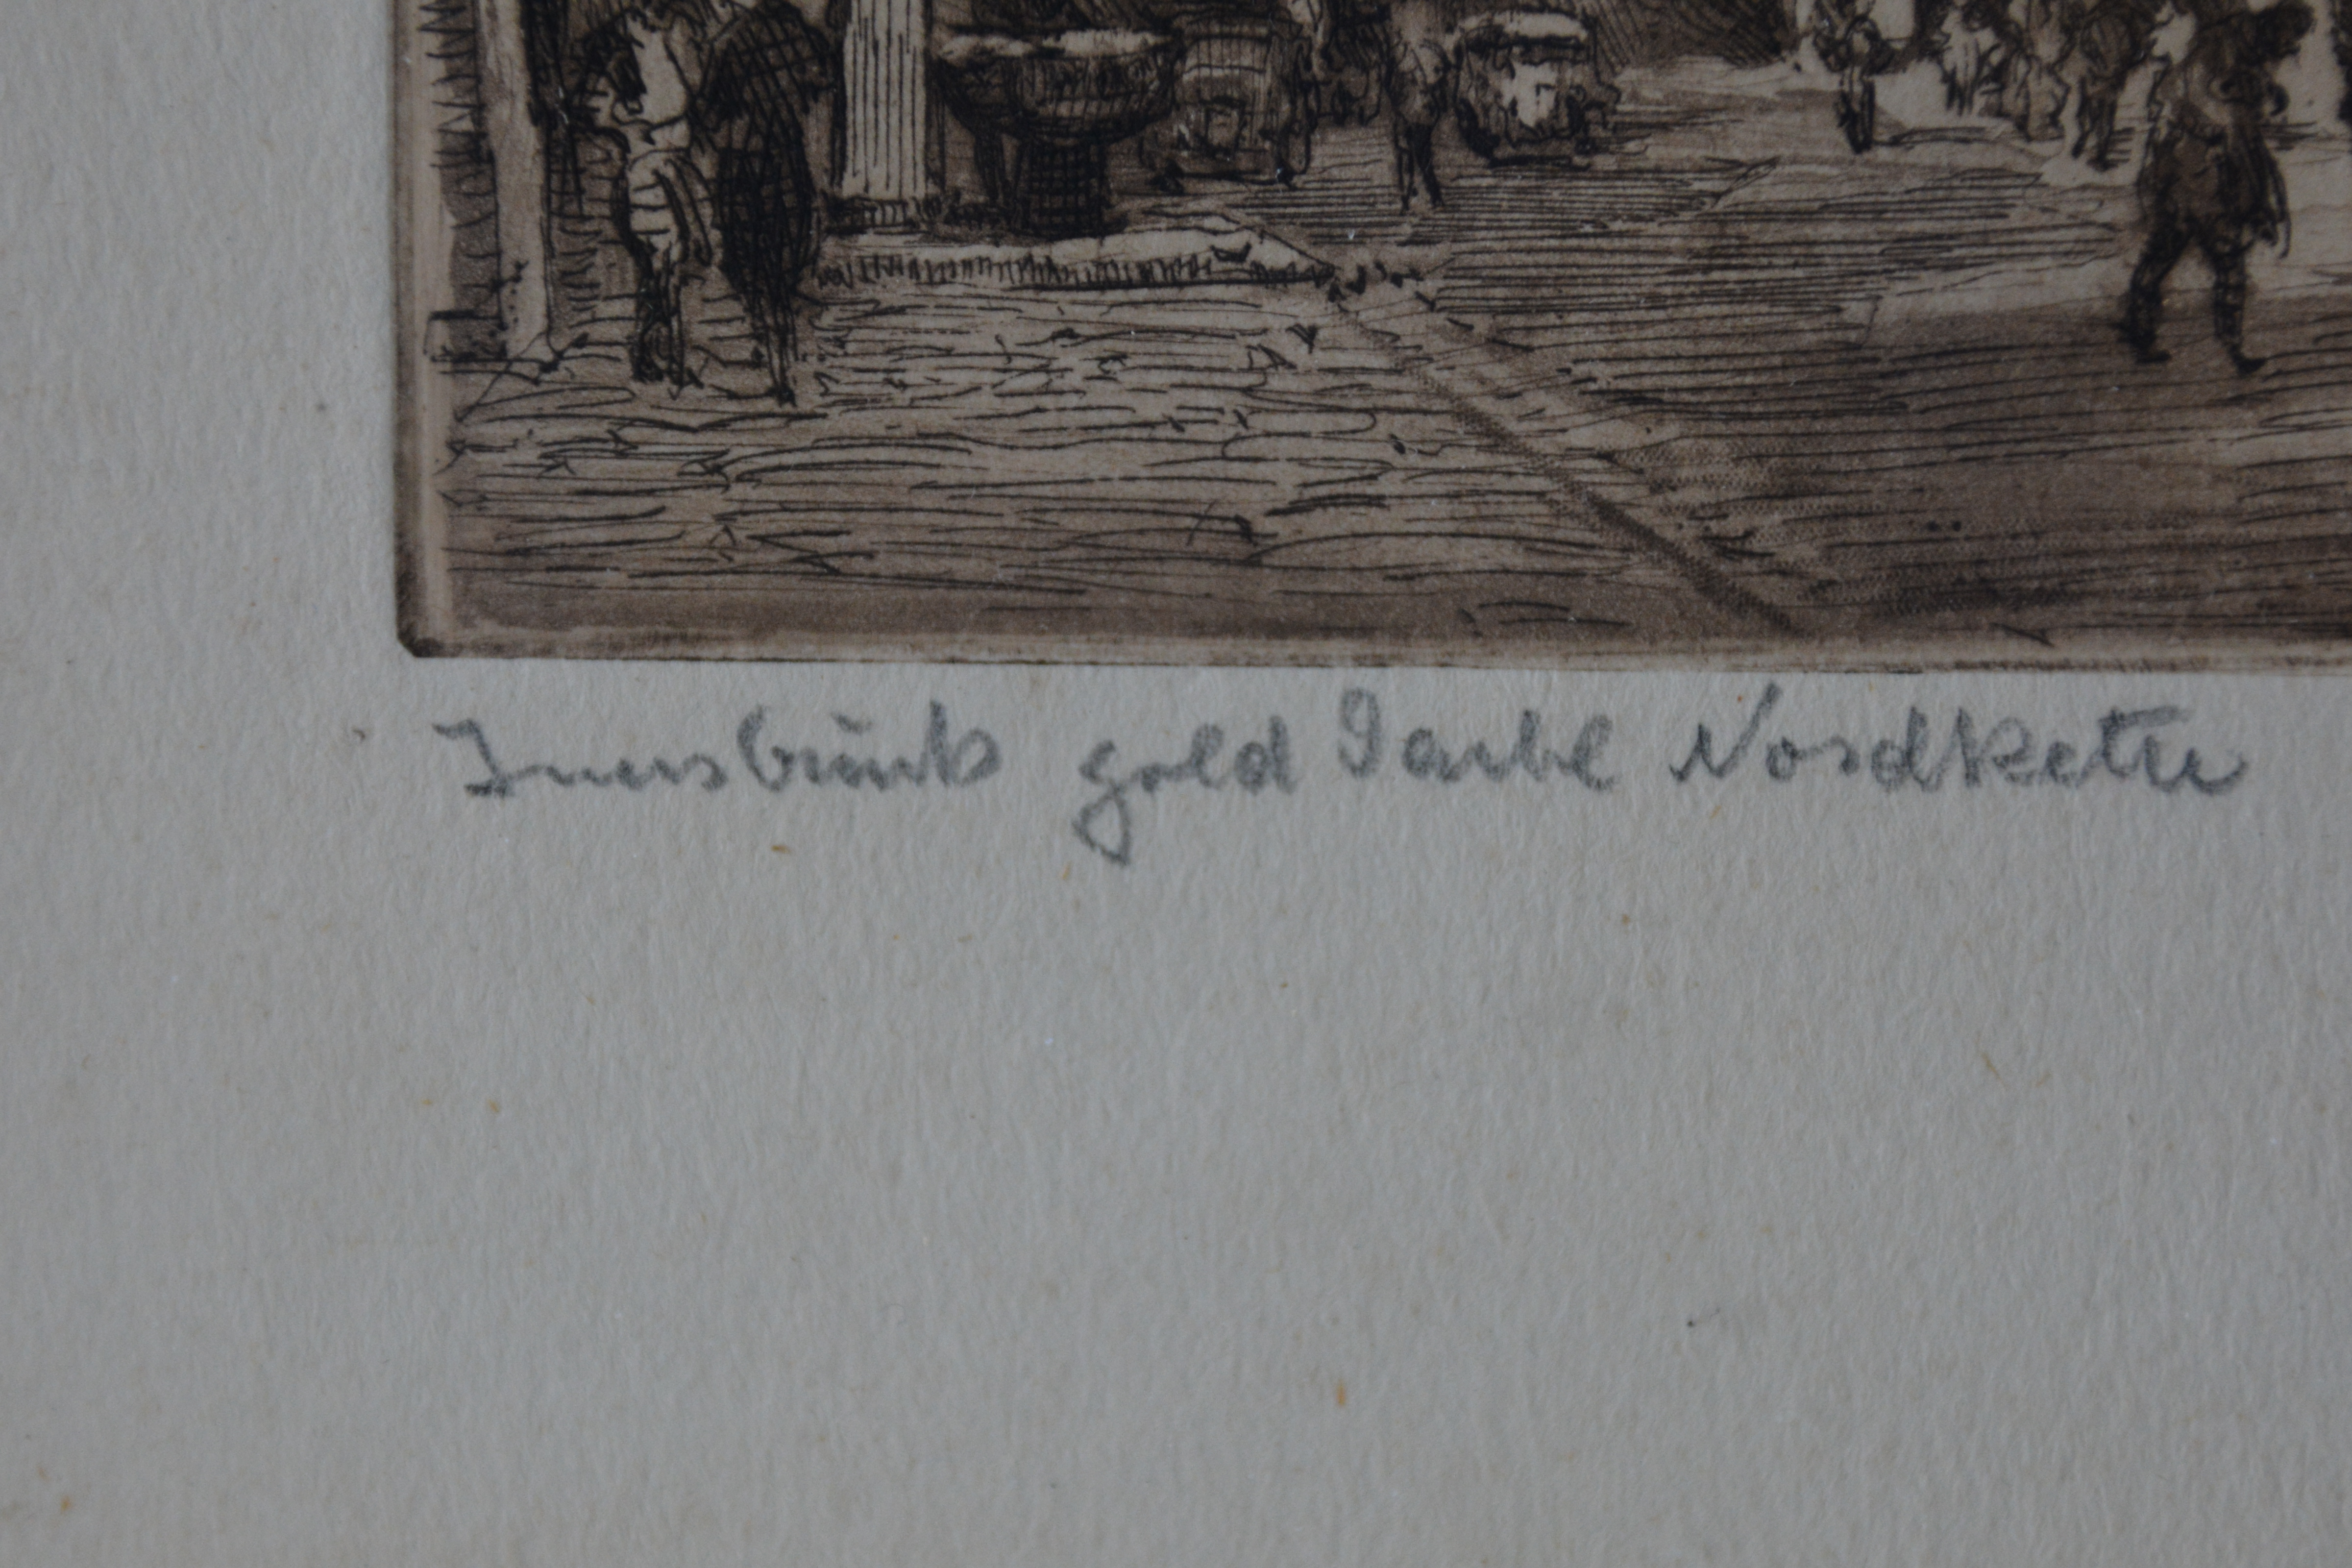 Innsbruck gold Dachl Nordkette